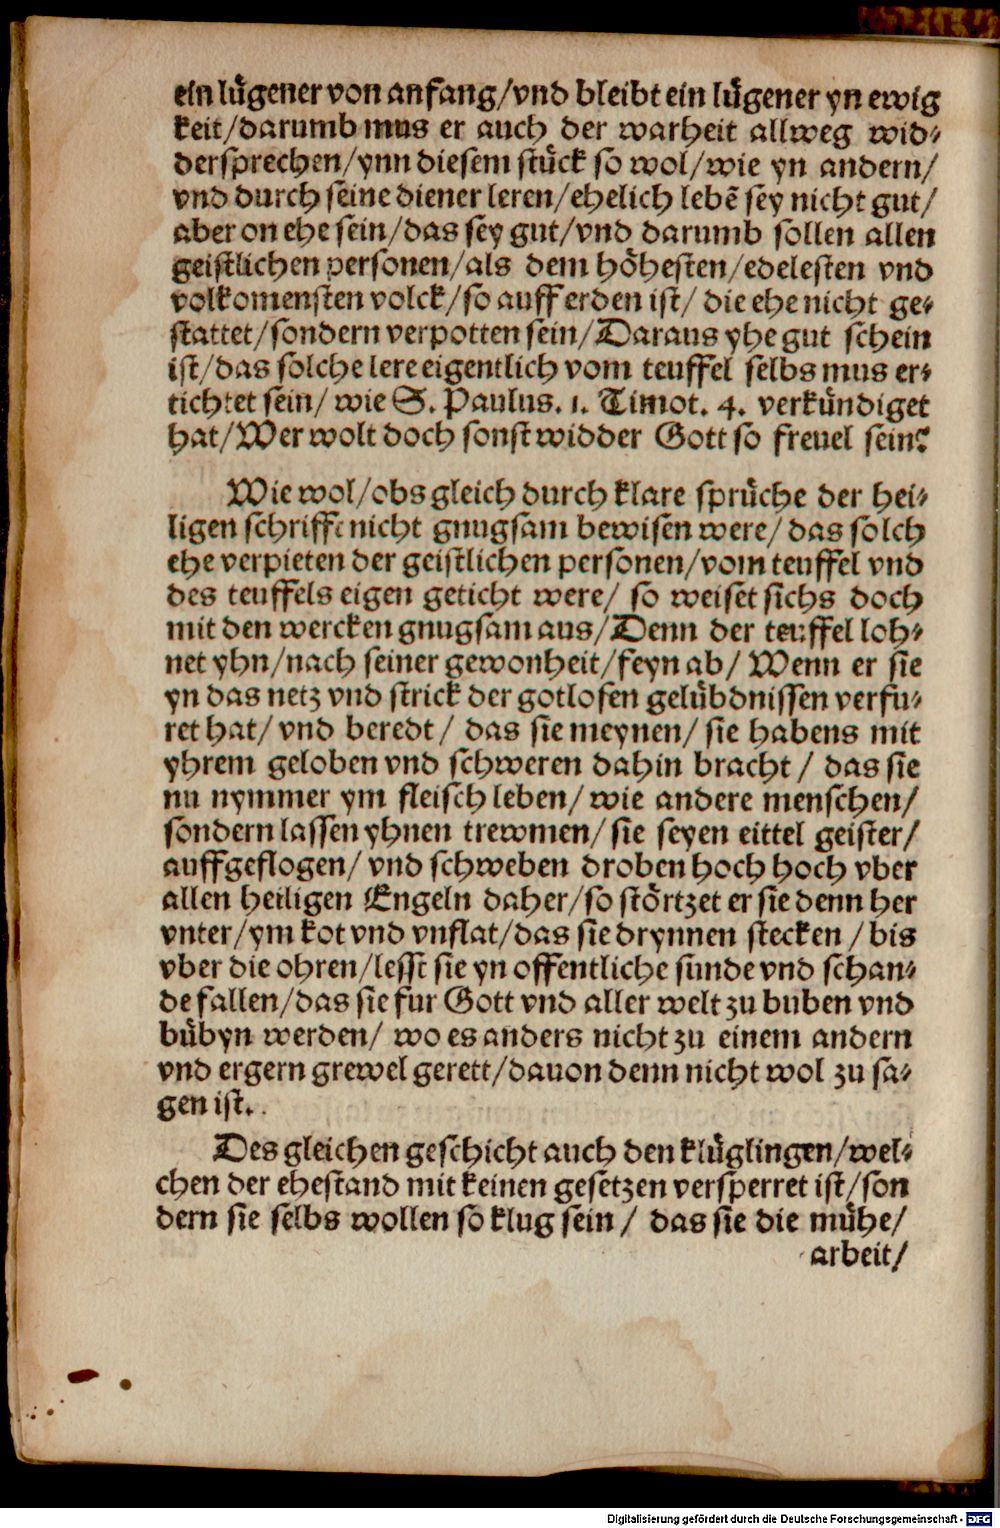 ein lügener von anfang/vnd bleibt ein lügener yn ewig
keit/darumb mus er auch der warheit allweg wid-
dersprechen/ynn diesem stück so wol/wie yn andern/
vnd durch seine diener leren/ehelich lebē sey nicht gut/
aber on ehe sein/das sey gut/vnd darumb sollen allen
geistlichen personen/als dem höhesten/edelesten vnd
volkomensten volck/so auff erden ist/ die ehe nicht ge-
stattet/sondern verpotten sein/Daraus yhe gut schein
ist/das solche lere eigentlich vom teuffel selbs mus er-
tichtet sein/ wie S. Paulus. 1. Timot. 4. verkündiget
hat/Wer wolt doch sonst widder Gott so freuel sein?
Wie wol/obs gleich durch klare sprüche der hei-
ligen schrifft nicht gnugsam bewisen were/das solch
ehe verpieten der geistlichen personen/vom teuffel vnd
des teuffels eigen geticht were/ so weiset sichs doch
mit den wercken gnugsam aus/Denn der teuffel loh-
net yhn/nach seiner gewonheit/feyn ab/ Wenn er sie
yn das netz vnd strick der gotlosen gelübdnissen verfu-
ret hat/ vnd beredt/ das sie meynen/ sie habens mit
yhrem geloben vnd schweren dahin bracht/ das sie
nu nymmer ym fleisch leben/ wie andere menschen/
sondern lassen yhnen trewmen/ sie seyen eittel geister/
auffgeflogen/ vnd schweben droben hoch hoch vber
allen heiligen Engeln daher/so störtzet er sie denn her
vnter/ym kot vnd vnflat/das sie drynnen stecken/bis
vber die ohren/lesst sie yn offentliche sunde vnd schan-
de fallen/das sie fur Gott vnd aller welt zu buben vnd
bübyn werden/ wo es anders nicht zu einem andern
vnd ergern grewel gerett/dauon denn nicht wol zu sa-
gen ist.
Des gleichen geschicht auch den klüglingen/wel-
chen der ehestand mit keinen gesetzen versperret ist/son
dern sie selbs wollen so klug sein/ das sie die mühe/
arbeit/
Digitalisierung gefördert durch die Deutsche Forschungsgemeinschaft - DFG